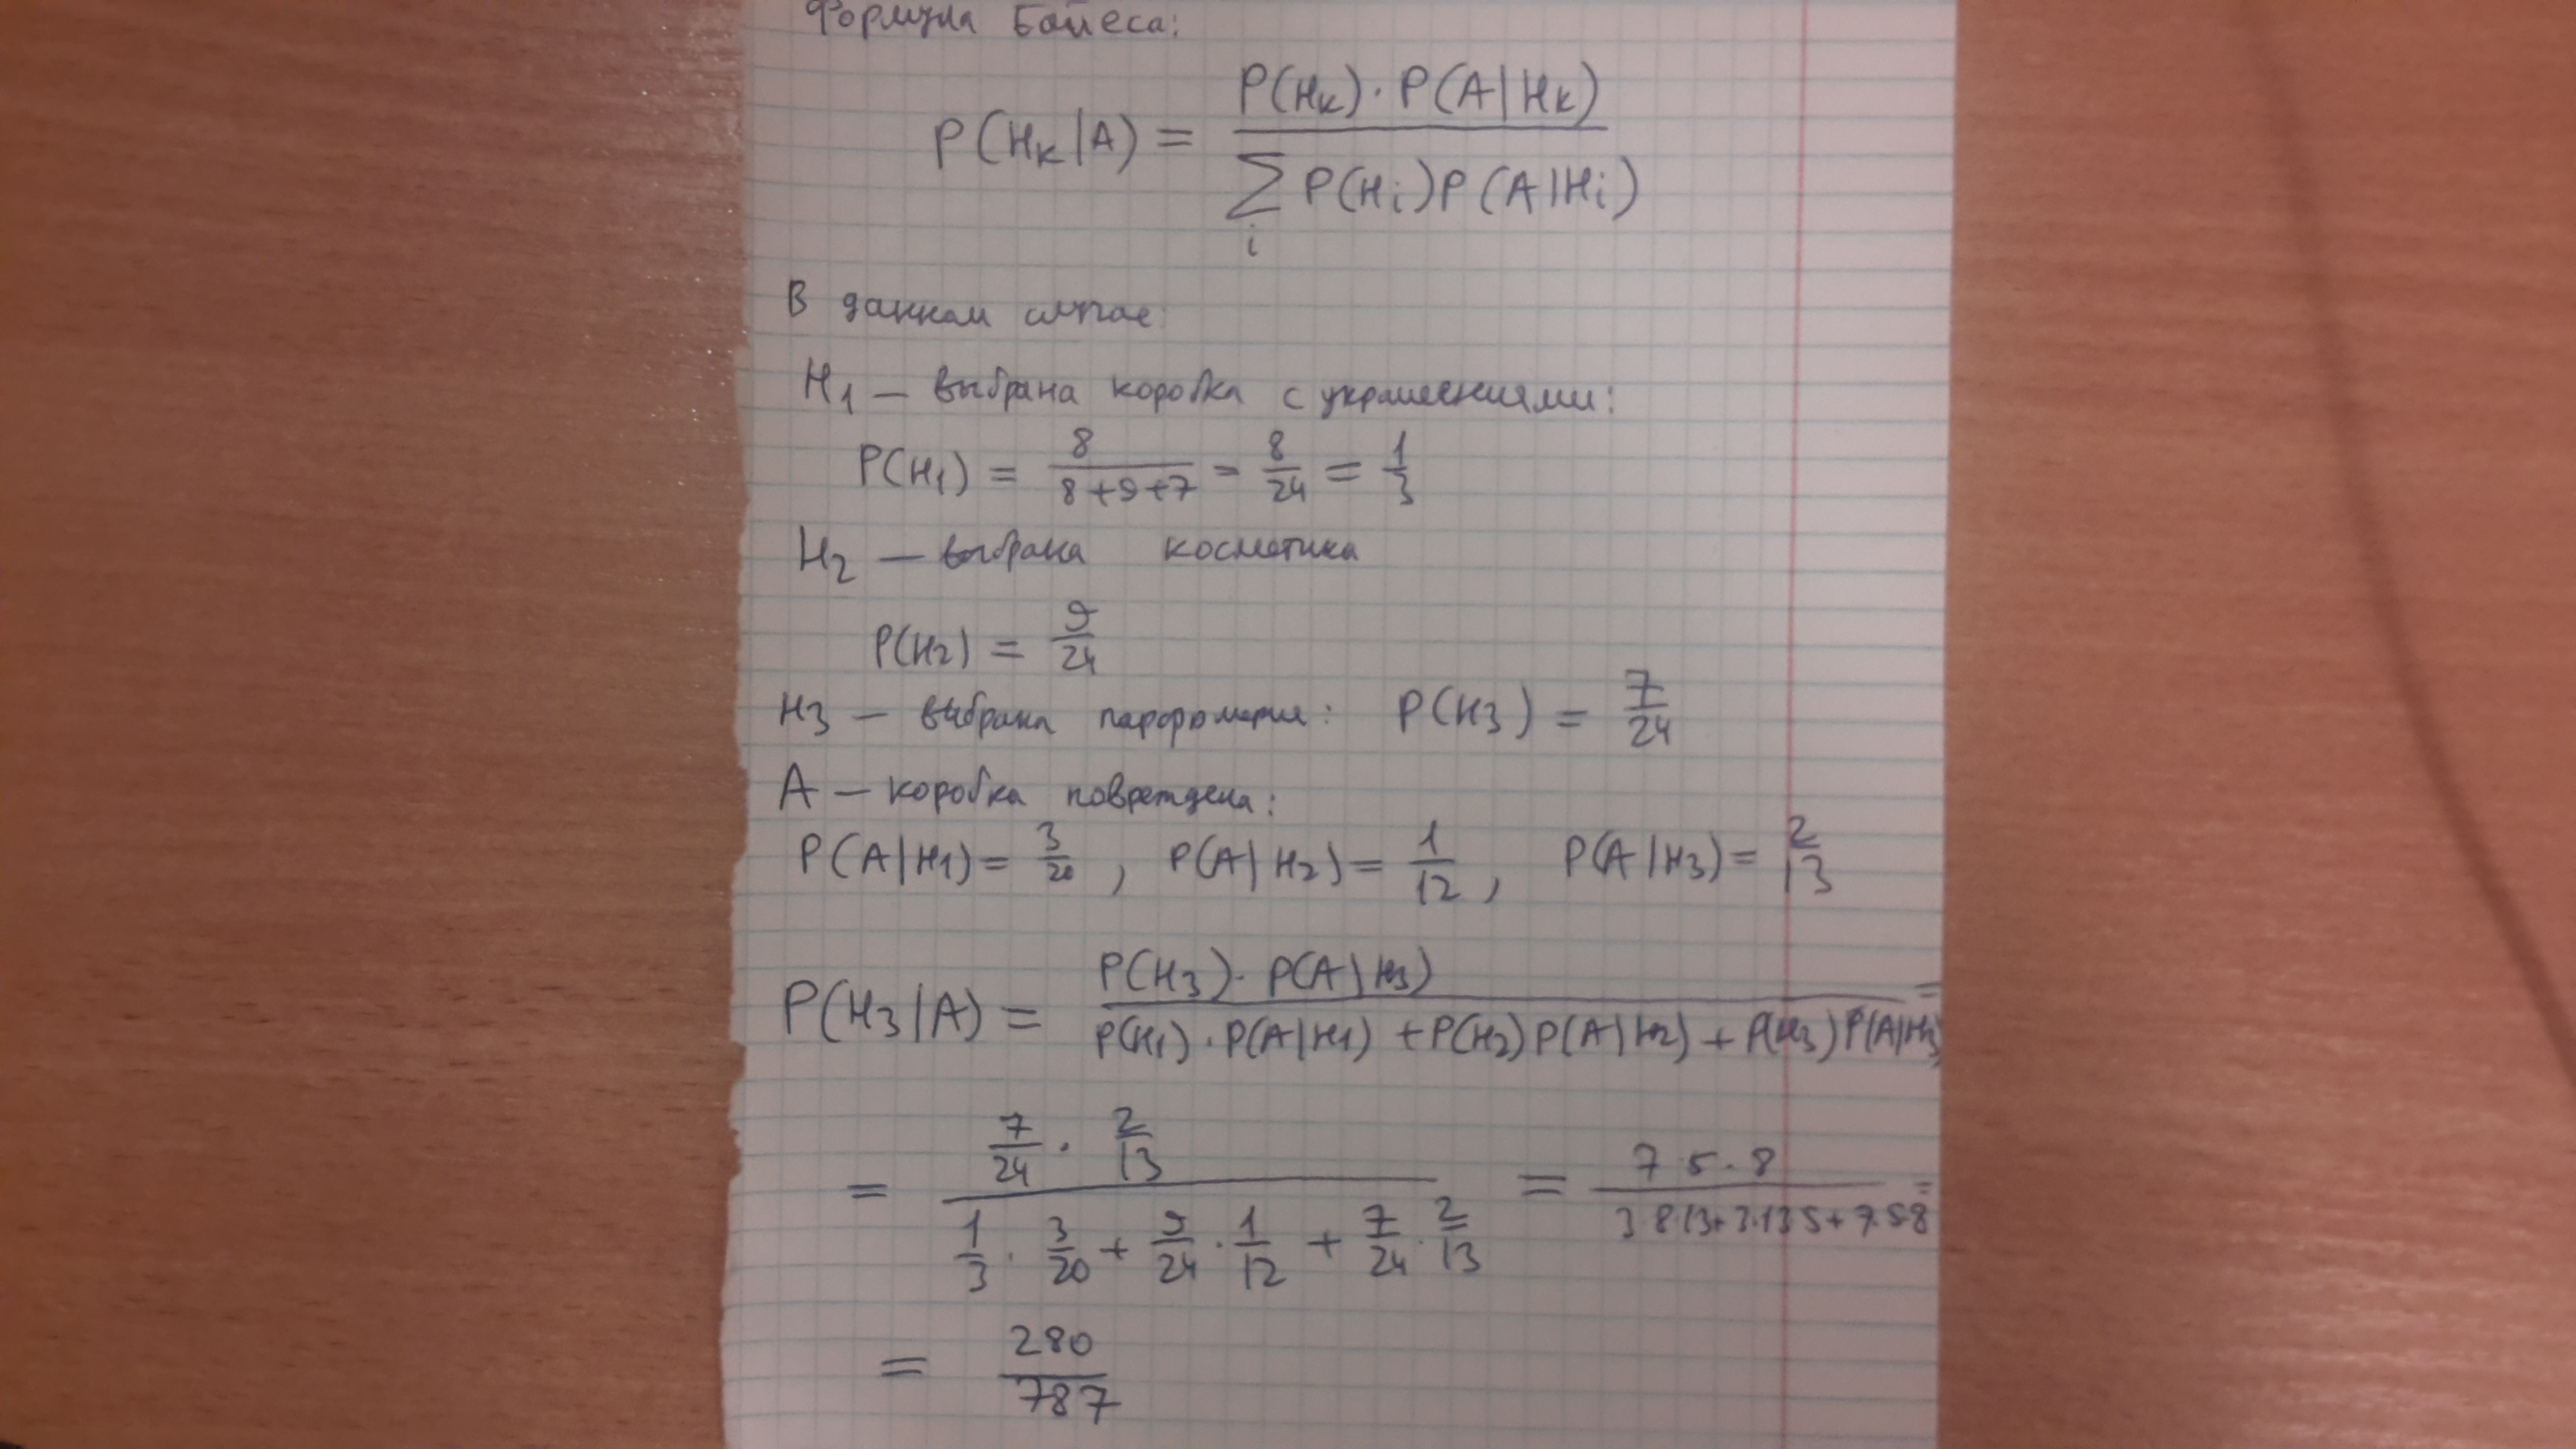 Формула Байеса:
P(Hk|A) = P(Hk)·P(A|Hk) / ∑i P(Hi)P(A|Hi)
В данном случае:
H1 — выбрана коробка с украшениями:
P(H1) = 8/(8+9+7) = 8/24 = 1/3
H2 — выбрана косметика
P(H2) = 9/24
H3 — выбрана парфюмерия: P(H3) = 7/24
A — коробка повреждена:
P(A|H1) = 3/20, P(A|H2) = 1/12, P(A|H3) = 2/13
P(H3|A) = P(H3)·P(A|H3) / (P(H1)·P(A|H1) + P(H2)P(A|H2) + P(H3)P(A|H3)) =
= (7/24 · 2/13) / (1/3 · 3/20 + 9/24 · 1/12 + 7/24 · 2/13) = 7·5·8 / (3·8·13+3·13·5+7·5·8) =
= 280/787